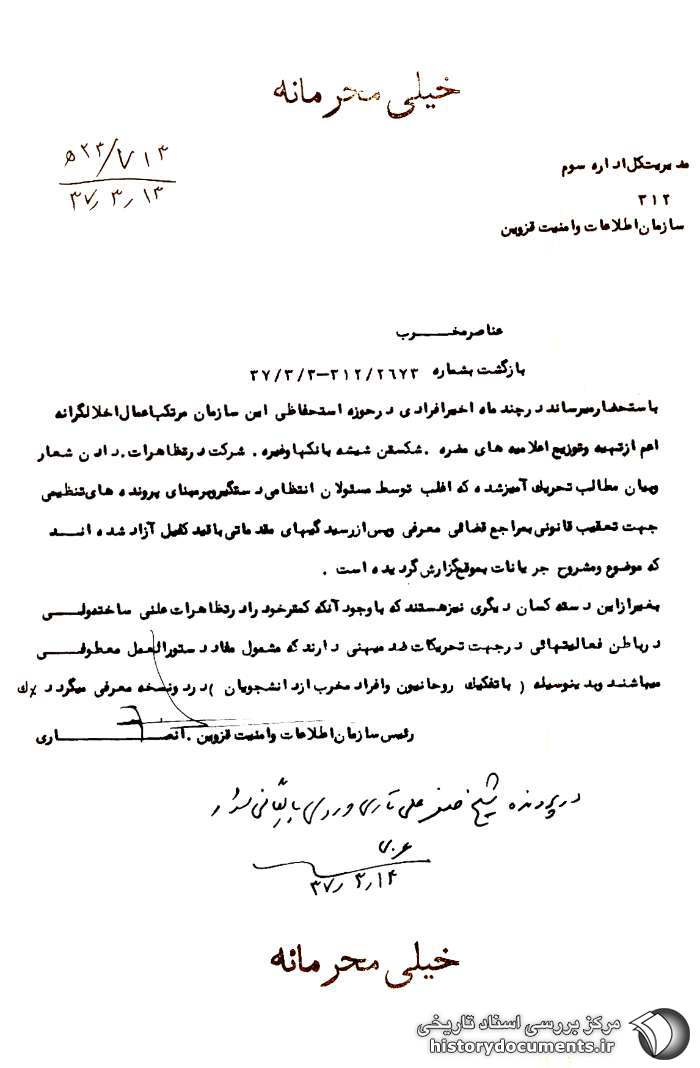 خیلی محرمانه
مدیریت کل اداره سوم
۳۱۲
۵۲۳/۷۱۳
۳۷٫۳٫۱۳
سازمان اطلاعات وامنیت قزوین
عناصر مخرب
بازگشت بشماره ۳۱۲/۲۶۷۳-۳۷/۳/۳
باستحضار میرساند در چند ماه اخیر افرادی در حوزه استحفاظی این سازمان مرتکب اعمال اخلالگرانه
اعم از تهیه وتوزیع اعلامیه های مضره . شکستن شیشه بانکها وغیره . شرکت در تظاهرات . دادن شعار
وبیان مطالب تحریک آمیز شده که اغلب توسط مسئولان انتظامی دستگیر وبرمبنای پرونده های تنظیمی
جهت تعقیب قانونی بمراجع قضائی معرفی وپس از رسیدگیهای مقدماتی باقید کفیل آزاد شده اند
که موضوع ومشروح جریانات بموقع گزارش گردیده است .
بغیر از این دسته کسان دیگری نیز هستند که با وجود آنکه کمتر خود را در تظاهرات علنی ساخته ولی
در باطن فعالیتهائی در جهت تحریکات ضد میهنی دارند که مشمول مفاد دستورالعمل معطوفی
میباشند وبدینوسیله ( با تفکیک روحانیون وافراد مخرب از دانشجویان ) در دو نسخه معرفی میگردد
رئیس سازمان اطلاعات وامنیت قزوین . انصاری
در پرونده شیخ علی
۳۷٫۳٫۱۴
خیلی محرمانه
مرکز بررسی اسناد تاریخی
historydocuments.ir